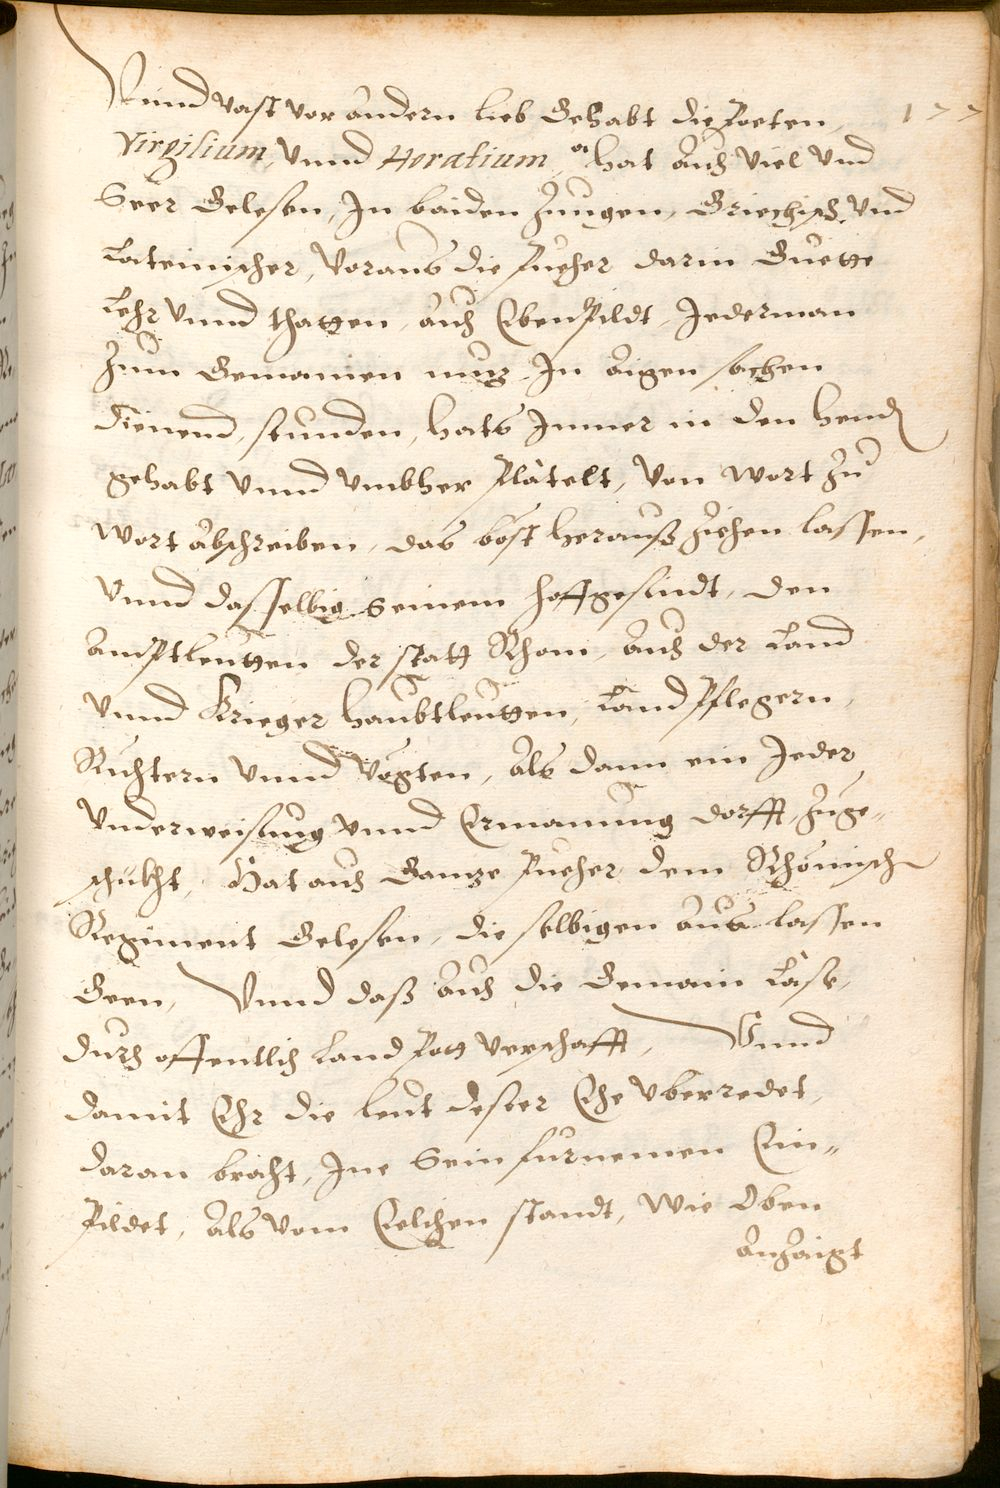 Vnnd vast vor andern lieb Gehabt die Poeten, 177
Virgilium, Vnnd Horatium, er hat auch Viel Vnd
Seer Gelesen, In baiden Zungen, Griechisch, Vnd
Lateinischer, Voraus die Puecher darin Guette
Lehr Vnnd thatten, auch Ebenpildt, Jederman
Zum Gemainen nuz, In aigen sachen
Dienend, stunden, hats Immer in den Hend
gehabt Vnnd Vmbher Plätelt, Von Wort Zu
Wort Abschreiben, das böst herauß Ziehen lassen,
Vnnd dasselbig Seinem Hoffgesindt, den
Amptleutten der statt Rhom, Auch der Land
Vnnd Krieger Haubtleutten, Land Pflegern,
Richtern Vnnd Vögten, Als dann ein Jeder
Vnderweisung Vnnd Ermanung dorfft, Zuge=
schückht, Hat auch Ganze Puecher dem Rhömisch
Regiment Gelesen, die selbigen Aus lassen
Geen, Vnnd daß Auch die Gemain Läse,
durch offentlich Land Pott Verschafft, Vnnd
damit Ehr die leut dester Ehe Vberredet,
daran bracht, Ine Sein furnemen Ein=
Pildet, Als Vom Celchen standt, Wie Oben
Anzaigt